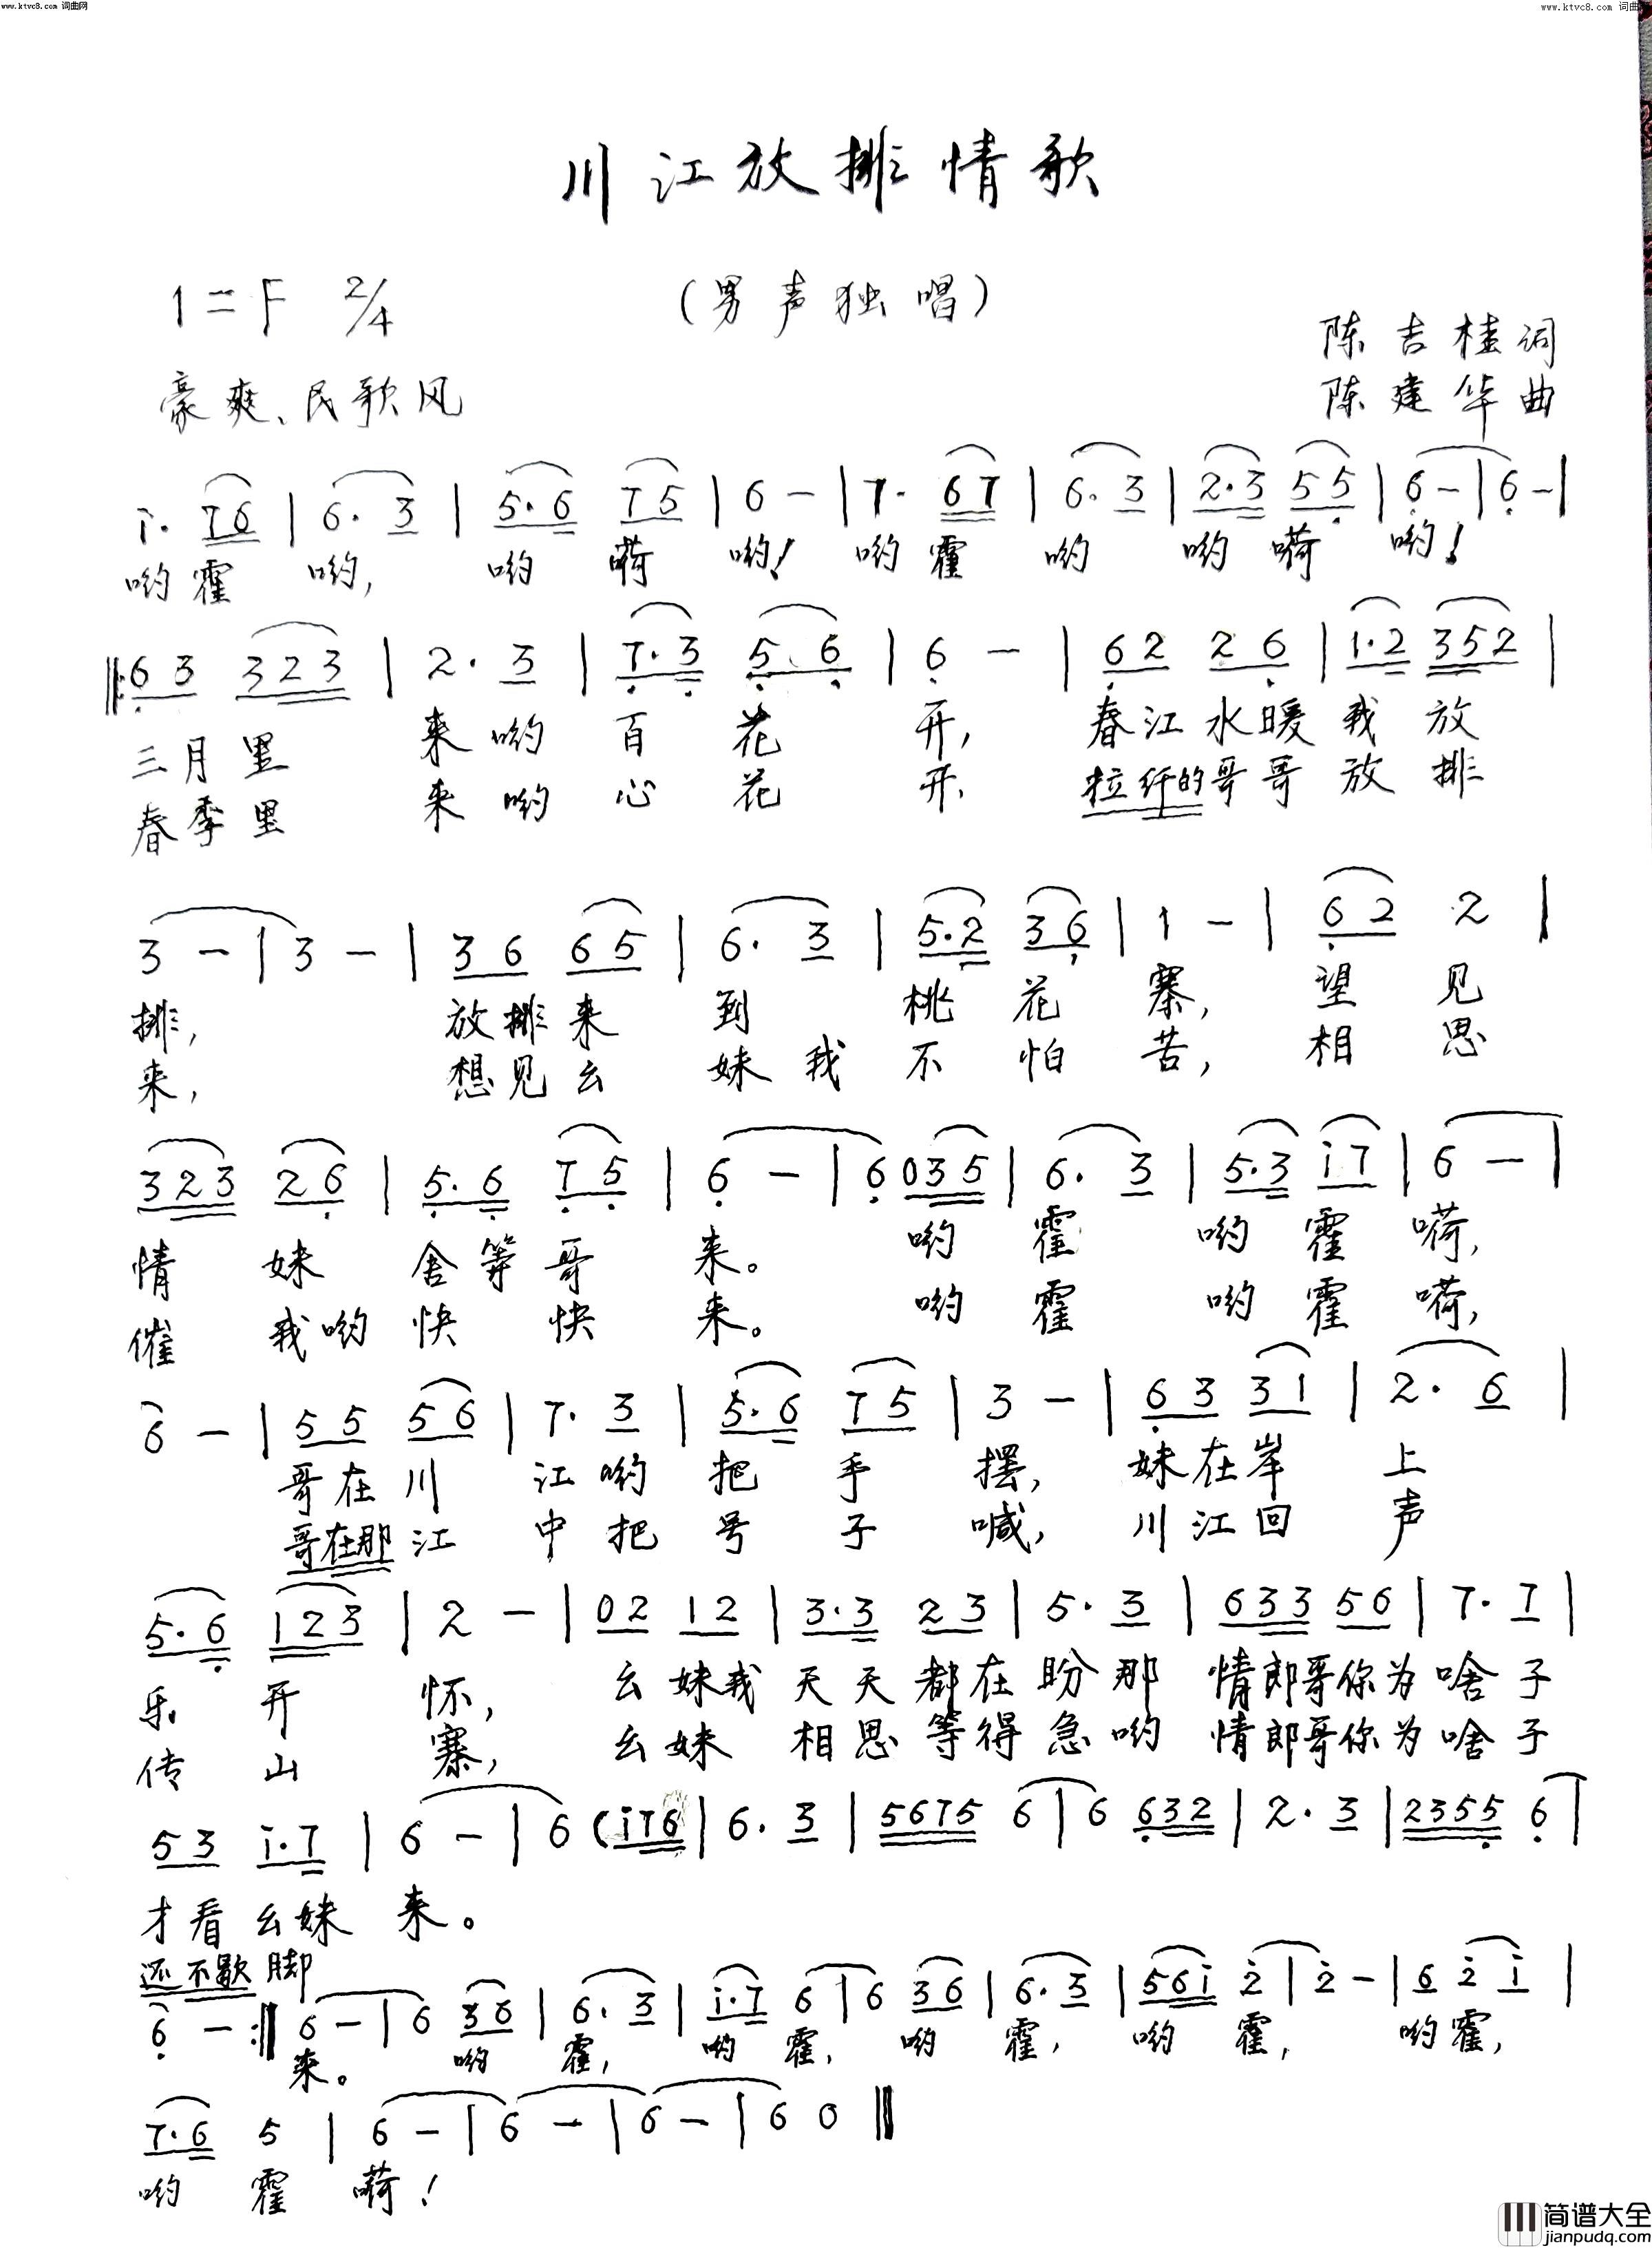 www.ktvc8.com 词曲网
www.ktvc8.com 词曲网
川江放排情歌
1=F 2/4
(男声独唱)
陈吉桂词
豪爽、民歌风
陈建华曲
7· 76 | 6· 3 | 5·6 75 | 6 - | 7· 67 | 6· 3 | 2·3 55 | 6 - | 6 - |
哟霍 哟, 哟 嗬 哟! 哟 霍 哟 哟 嗬 哟!
‖: 63 323 | 2· 3 | 7·3 5 6 | 6 - | 62 26 | 1·2 352 |
三月里 来哟 百 花 开, 春江水暖我 放
春季里 来哟 心 花 开, 拉纤的哥哥放排
3 - | 3 - | 36 65 | 6· 3 | 5·2 36 | 1 - | 62 2 |
排, 放排来 到 桃 花 寨, 望 见
来, 想见幺 妹我 不 怕 苦, 相 思
323 26 | 5·6 75 | 6 - | 6 035 | 6· 3 | 5·3 i7 | 6 - |
情 妹 舍等哥 来。 哟 霍 哟 霍 嗬,
催 我哟 快 快 来。 哟 霍 哟 霍 嗬,
6 - | 55 56 | 7· 3 | 5·6 75 | 3 - | 63 31 | 2· 6 |
哥在川 江哟 把 手 摆, 妹在岸 上
哥在那江 中把 号 子 喊, 川江回 声
5·6 123 | 2 - | 02 12 | 3·3 23 | 5· 3 | 633 56 | 7· 7 |
乐 开 怀, 幺 妹我 天天都在盼那 情郎哥你为啥子
传 山 寨, 幺 妹 相思等得急哟 情郎哥你为啥子
53 i·7 | 6 - | 6 (i76 | 6· 3 | 5675 6 | 6 632 | 2· 3 | 2355 6 |
才看幺妹 来。
还不歇脚
6 - :‖ 6 - | 6 36 | 6· 3 | i·7 6 | 6 36 | 6· 3 | 56i 2 | 2 - | 6 2 i |
来。 哟 霍, 哟 霍, 哟 霍, 哟 霍, 哟霍,
7·6 5 | 6 - | 6 - | 6 - | 6 0 ‖
哟 霍 嗬!
简谱大全
jianpudq.com